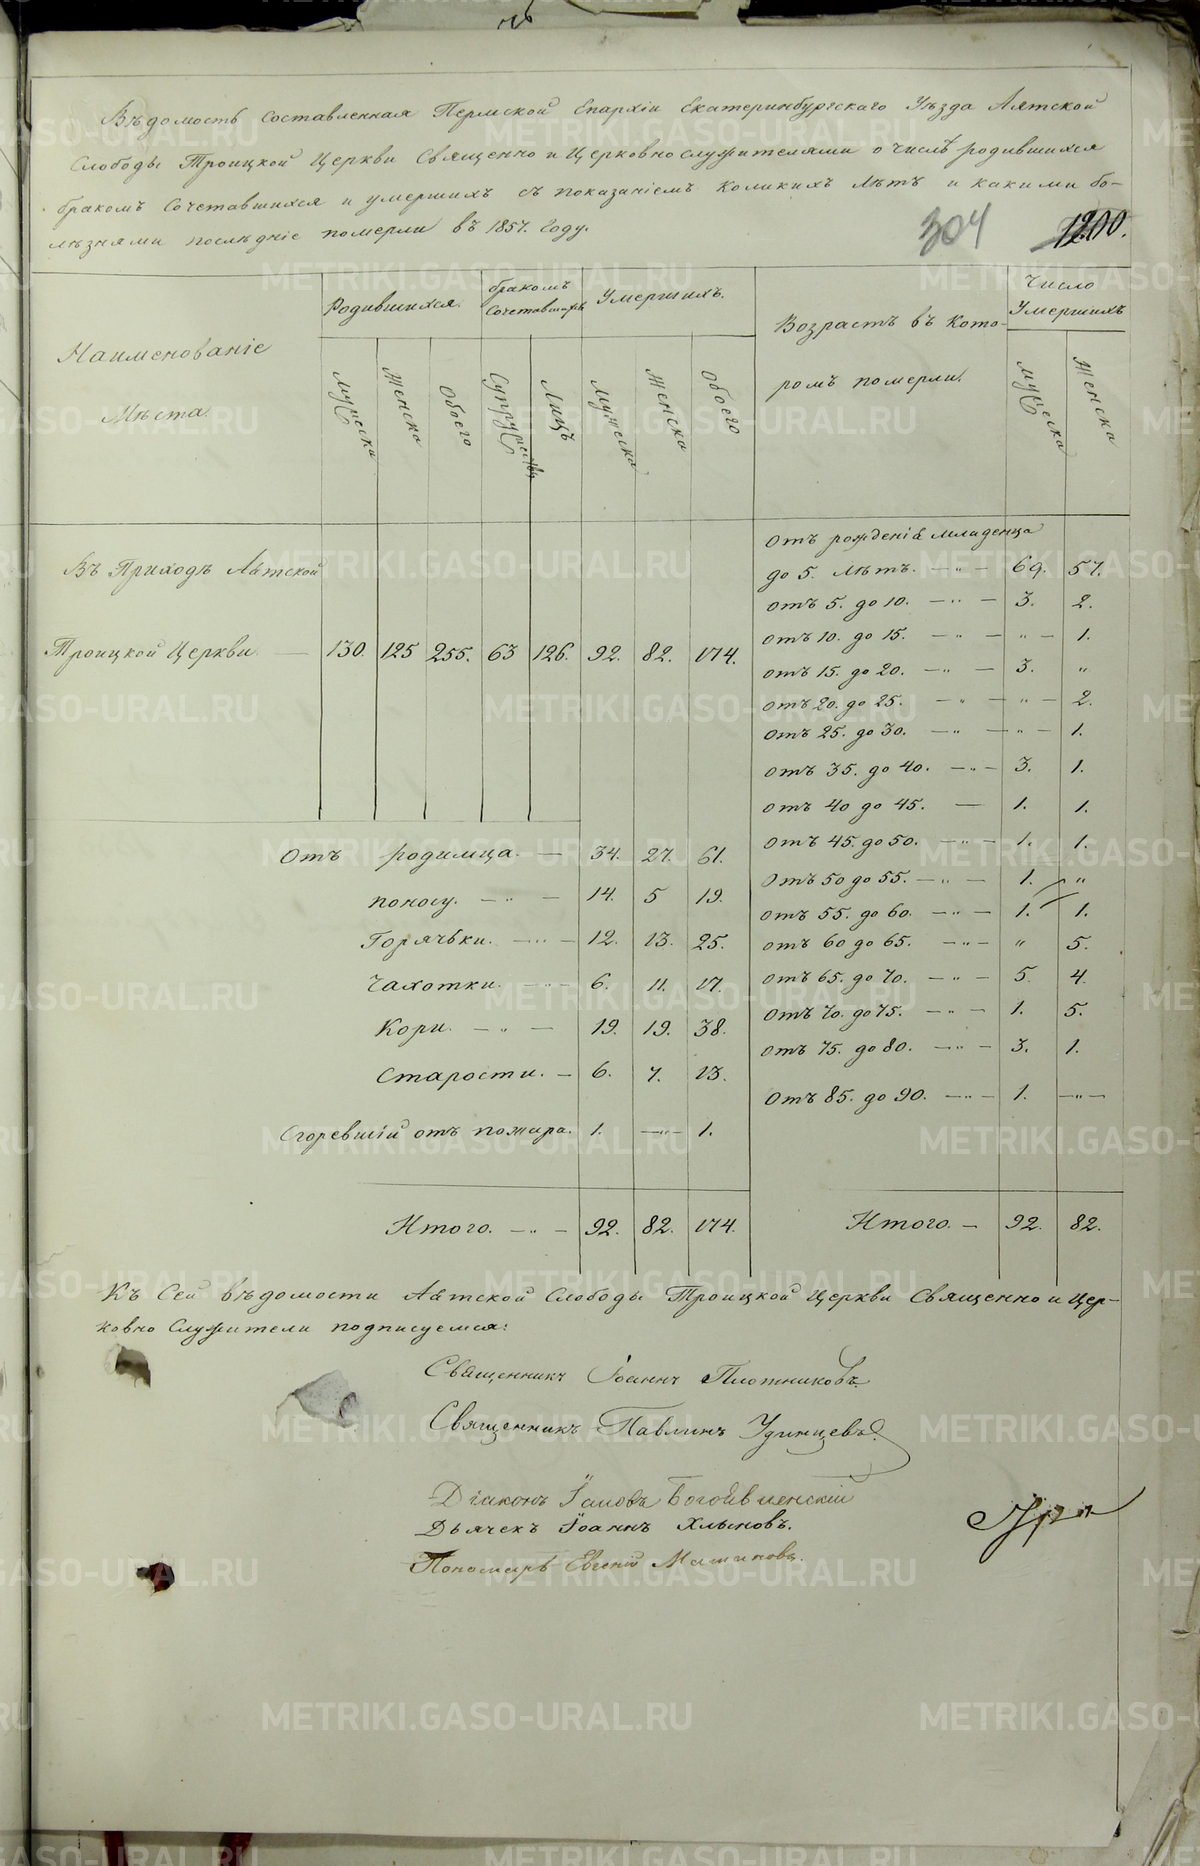 Вѣдомость Составленная Пермской Епархіи Екатеринбургскаго Уѣзда Аятской
Слободы Троицкой Церкви Священно и Церковнослужителями о числѣ родившихся
бракомъ Сочетавшихся и умершихъ съ показаніемъ коликихъ Лѣтъ и какими бо-
лѣзнями послѣдніе померли въ 1857. Году.
304 1200.
Наименованіе
Мѣста.
Родившихся.
бракомъ
Сочетавшихъ
Умершихъ.
Возрастъ въ кото-
ромъ померли.
Число
Умершихъ
Мужеска
Женска
Обоего
Супружествъ
Лицъ
Мужеска
Женска
Обоего
Мужеска
Женска
Въ Приходѣ Аятской
Троицкой Церкви. — 130. 125 255. 63 126. 92. 82. 174.
Отъ рожденія младенца
до 5. Лѣтъ. — „ — 69. 57.
отъ 5. до 10. — „ — 3. 2.
отъ 10. до 15. — „ — „ — 1.
отъ 15. до 20. — „ — 3. „
отъ 20. до 25. — „ — „ — 2.
отъ 25. до 30. — „ — „ — 1.
отъ 35. до 40. — „ — 3. 1.
отъ 40 до 45. — 1. 1.
отъ 45. до 50. — „ — 1. 1.
отъ 50 до 55. — „ — 1. „
отъ 55. до 60. — „ — 1. 1.
отъ 60 до 65. — „ — „ 5.
отъ 65. до 70. — „ — 5 4.
отъ 70. до 75. — „ — 1. 5.
отъ 75. до 80. — „ — 3. 1.
отъ 85. до 90. — „ — 1. — „ —
Отъ родимца. — 34. 27. 61.
поносу. — „ — 14. 5 19.
Горячьки. — „ — 12. 13. 25.
Чахотки. — „ — 6. 11. 17.
Кори. — „ — 19. 19. 38.
Старости. — 6. 7. 13.
Сгоревшій отъ пожара. 1. — „ — 1.
Итого. — „ — 92. 82. 174.
Итого. — 92. 82.
Къ Сей вѣдомости Аятской Слободы Троицкой Церкви Священно и Цер-
ковно Служители подписуемся:
Священникъ Іоаннъ Плотниковъ.
Священникъ Павлинъ Удинцевъ.
Діаконъ Іаковъ Богоявленскій
Дьячекъ Іоаннъ Хлыновъ.
Пономарь Евгеній
METRIKI.GASO-URAL.RU